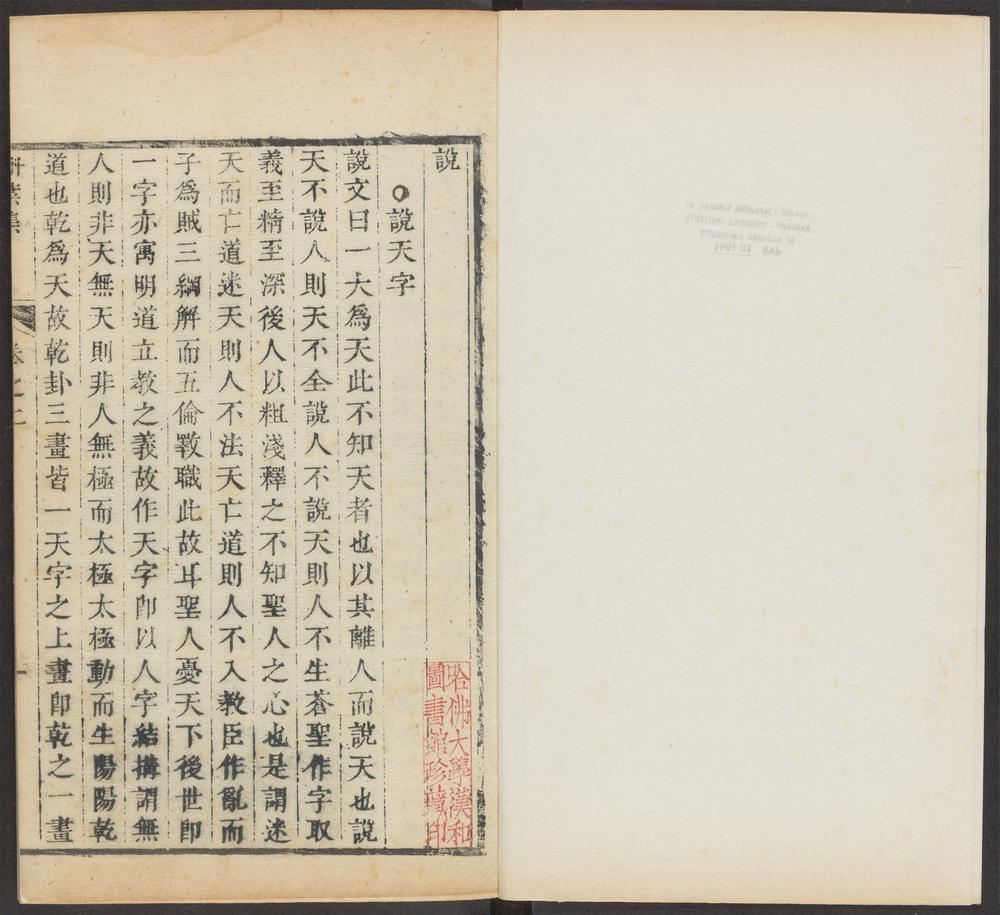 說
說天字
說文曰一大爲天此不知天者也以其離人而說天也說
天不說人則天不全說人不說天則人不生蒼聖作字取
義至精至深後人以粗淺釋之不知聖人之心也是謂迷
天而亡道迷天則人不法天亡道則人不入教臣作亂而
子爲賊三綱解而五倫斁職此故耳聖人憂天下後世卽
一字亦寓明道立教之義故作天字卽以人字結搆謂無
人則非天無天則非人無極而太極太極動而生陽陽乾
道也乾爲天故乾卦三畫皆一天字之上畫卽乾之一畫
集
卷之二
一
哈佛大學漢和
圖書館珍藏印
CHINESE - JAPANESE LIBRARY OF
HARVARD - YENCHING INSTITUTE
AT HARVARD UNIVERSITY